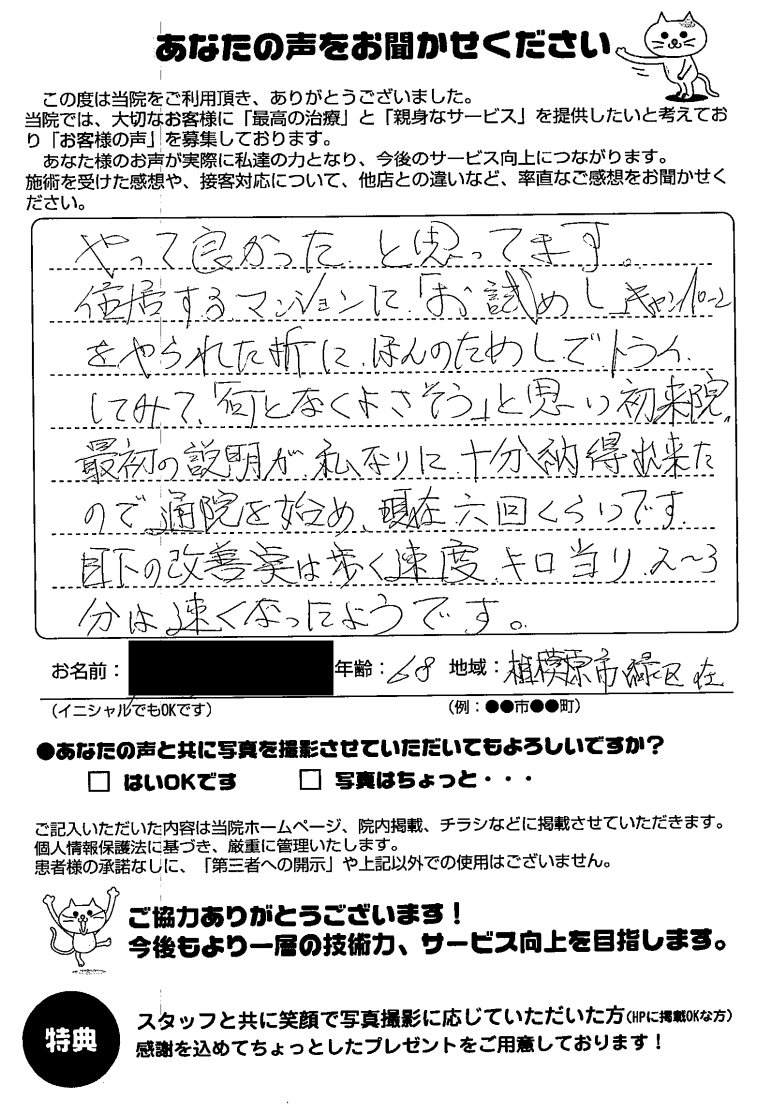 あなたの声をお聞かせください
この度は当院をご利用頂き、ありがとうございました。
当院では、大切なお客様に「最高の治療」と「親身なサービス」を提供したいと考えてお
り「お客様の声」を募集しております。
あなた様のお声が実際に私達の力となり、今後のサービス向上につながります。
施術を受けた感想や、接客対応について、他店との違いなど、率直なご感想をお聞かせく
ださい。
やって良かった と思ってます。
住居するマンションに「お試めし」キャンペーン
をやられた折に、ほんのためしでトライ
してみて、「何となくよさそう」と思い初来院。
最初の説明が、私なりに十分納得出来た
ので通院を始め、現在六回くらいです。
目下の改善実は歩く速度、キロ当り、2〜3
分は速くなったようです。
お名前： 年齢：68 地域：相模原市緑区在
（イニシャルでもOKです） （例：●●市●●町）
●あなたの声と共に写真を撮影させていただいてもよろしいですか？
□ はいOKです □ 写真はちょっと・・・
ご記入いただいた内容は当院ホームページ、院内掲載、チラシなどに掲載させていただきます。
個人情報保護法に基づき、厳重に管理いたします。
患者様の承諾なしに、「第三者への開示」や上記以外での使用はございません。
ご協力ありがとうございます！
今後もより一層の技術力、サービス向上を目指します。
特典
スタッフと共に笑顔で写真撮影に応じていただいた方（HPに掲載OKな方）
感謝を込めてちょっとしたプレゼントをご用意しております！